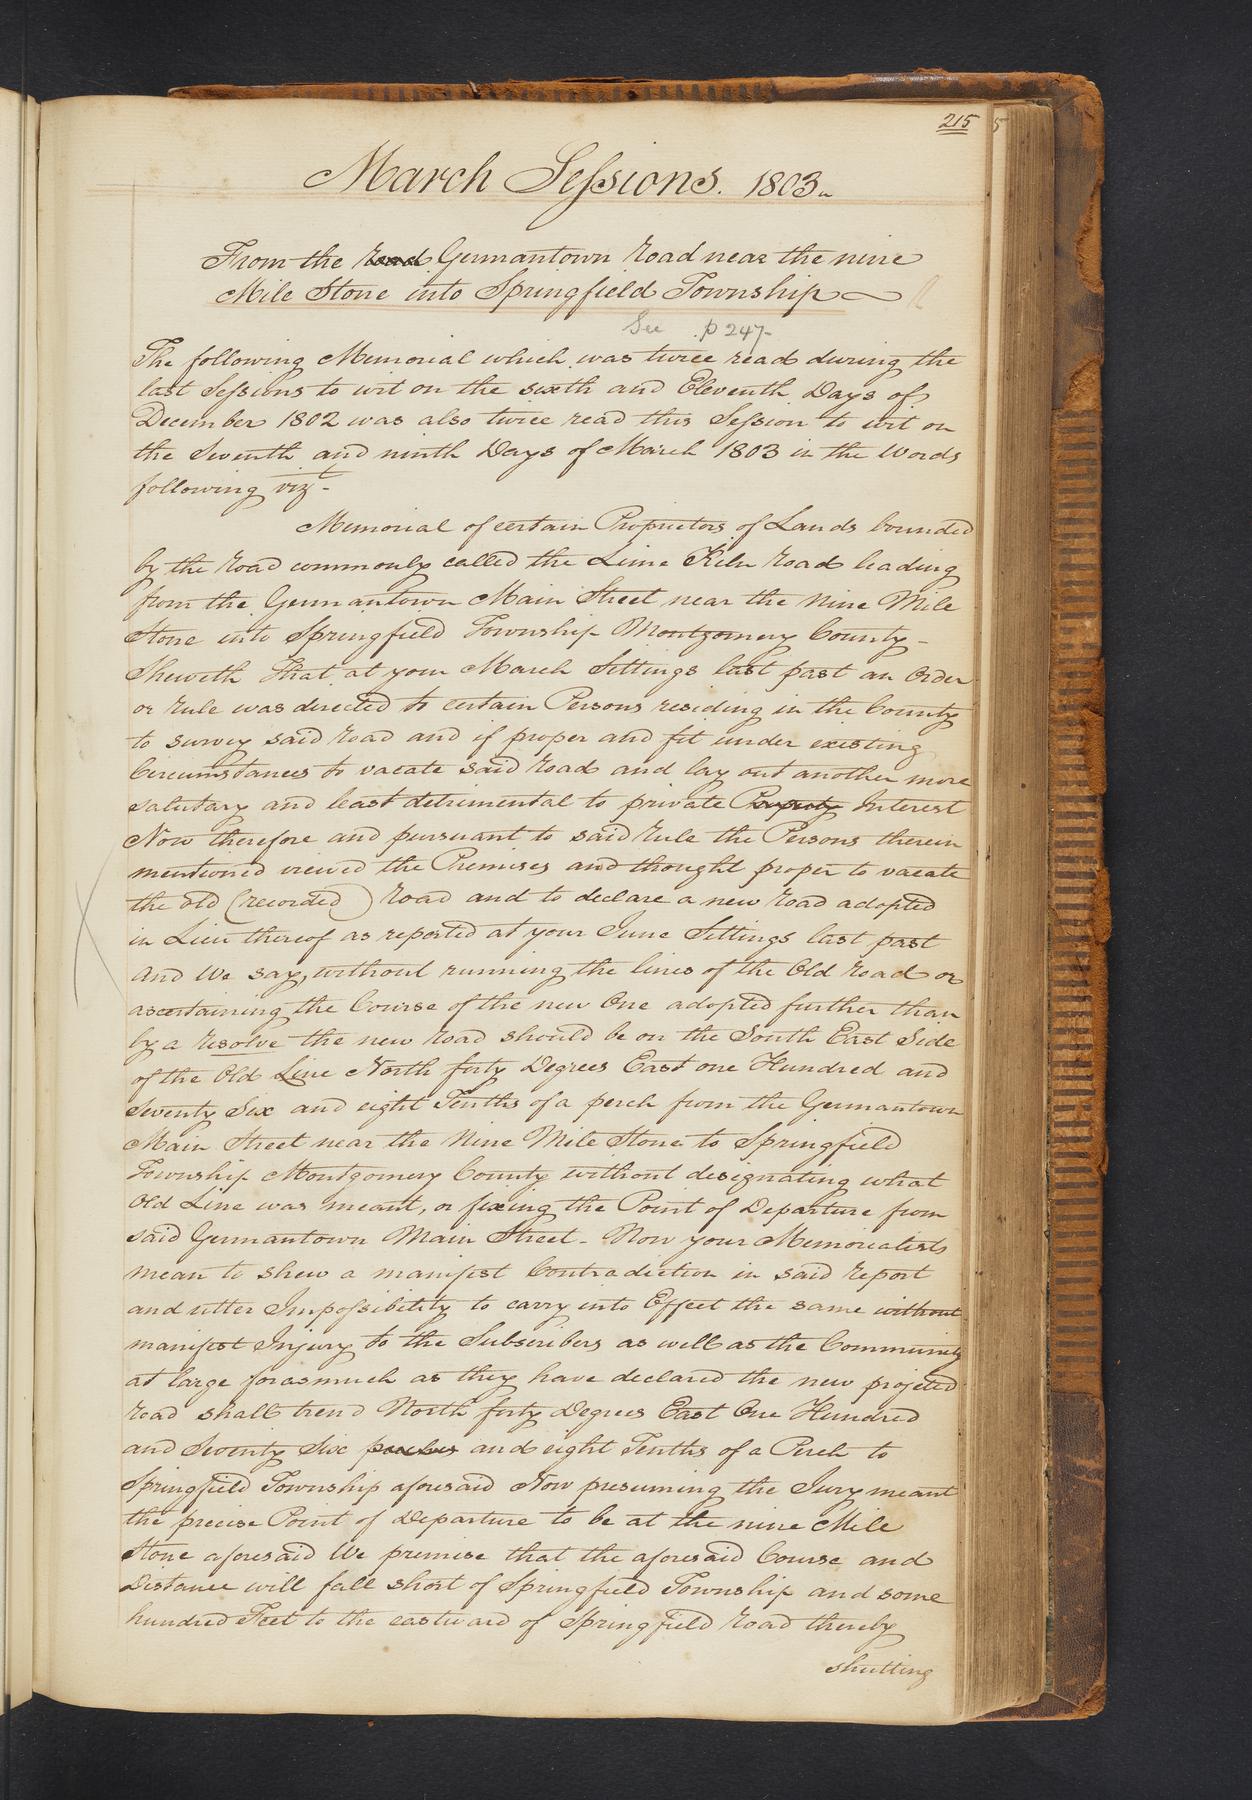 215
March Sessions. 1803
From the Road Germantown Road near the nine
Mile Stone into Springfield Township
See p 247
The following Memorial which was twice read during the
last Sessions to wit on the sixth and Eleventh Days of
December 1802 was also twice read this Session to wit on
the Seventh and ninth Days of March 1803 in the Words
following vizt-
Memorial of certain Proprietors of Lands bounded
by the Road commonly called the Lime Kiln Road leading
from the Germantown Main Street near the Nine Mile
Stone into Springfield Township Montgomery County -
Sheweth That at your March Sittings last past an Order
or Rule was directed to certain Persons residing in the County
to survey said Road and if proper and fit under existing
Circumstances to vacate said Road and lay out another more
salutary and least detrimental to private Property Interest
Now therefore and pursuant to said Rule the Persons therein
mentioned viewed the Premises and thought proper to vacate
the old (recorded) Road and to declare a new Road adopted
in Lieu thereof as reported at your June Sittings last past
And We say, without running the lines of the Old Road or
ascertaining the Course of the new One adopted further than
by a resolve the new Road should be on the South East Side
of the Old Line North forty Degrees East one Hundred and
Seventy Six and eight Tenths of a perch from the Germantown
Main Street near the Nine Mile Stone to Springfield
Township Montgomery County without designating what
Old Line was meant, or fixing the Point of Departure from
said Germantown Main Street - Now your Memorialists
mean to shew a manifest Contradiction in said Report
and utter Impossibility to carry into Effect the same without
manifest Injury to the Subscribers as well as the Community
at large forasmuch as they have declared the new projected
Road shall trend North forty Degrees East One Hundred
and Seventy Six perches and eight Tenths of a Perch to
Springfield Township aforesaid Now presuming the Jury meant
the precise Point of Departure to be at the nine Mile
Stone aforesaid We premise that the aforesaid Course and
Distance will fall short of Springfield Township and some
hundred Feet to the eastward of Springfield Road thereby
shutting